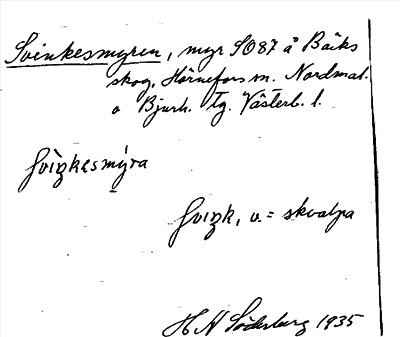 Svinkesmyren, myr S087 å Bäcks
skog, Hörnefors sn. Nordmal.
o Bjurh. tg. Västerb. l.
svinkesmyra
svink, v. = skvalpa
H N Söderberg 1935